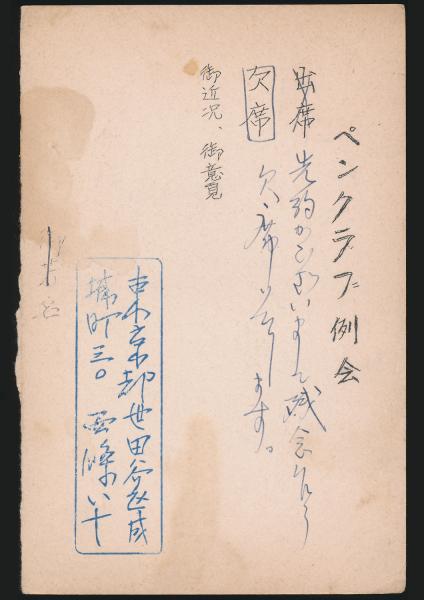 ペンクラブ例会
出席 先約がございまして残念乍ら
欠席 欠席いたします。
御近況、御意見
東京都世田谷区成
城町三〇 西條八十